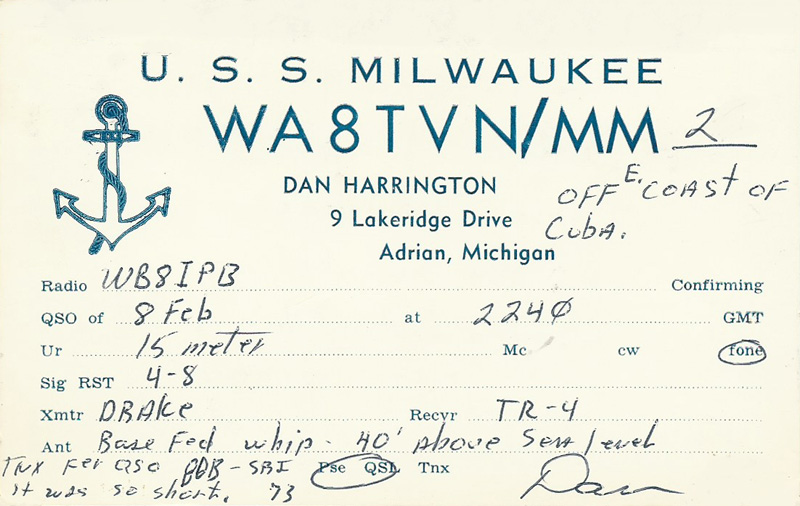 U. S. S. MILWAUKEE
WA8TVN/MM 2
DAN HARRINGTON
OFF E. COAST OF
9 Lakeridge Drive
Cuba.
Adrian, Michigan
Radio WB8IPB Confirming
QSO of 8 Feb at 2240 GMT
Ur 15 meter Mc cw fone
Sig RST 4-8
Xmtr DRAKE Recvr TR-4
Ant Base Fed whip - 40' above Sea level
Tnx Fer QSO - SRI Pse QSL Tnx
it was so short. 73 Dan